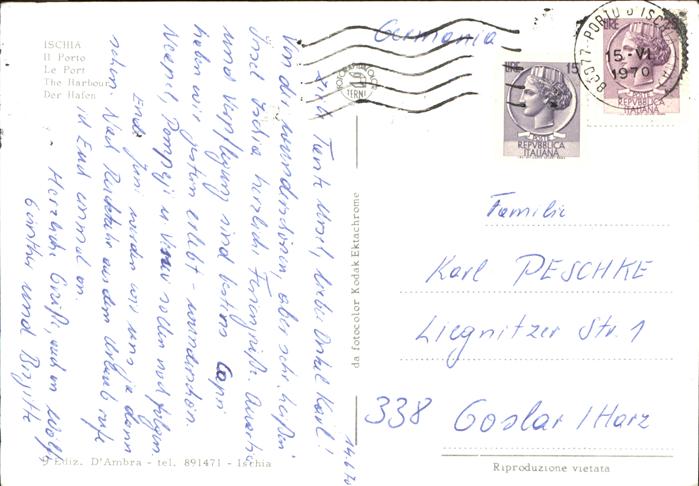 ISCHIA
Il Porto
Le Port
The Harbour
Der Hafen
14.6.70
Tante Ursel, liebe Onkel Karl!
Von der wunderschönen, aber sehr heißen
Insel Ischia herzliche Feriengrüße. Quartier
und Verpflegung sind bestens. Capri
haben wir gestern erlebt - wunderschön.
Neapel, Pompeji u. Vesuv sollen noch folgen.
Ende Juni werden wir uns ja dann
sehen. Nach Rückkehr aus dem Urlaub rufe
ich Euch einmal an.
Herzliche Grüße, auch an Wölfi
Günther und Brigitte
9 Ediz. D'Ambra - tel. 891471 - Ischia
da fotocolor Kodak Ektachrome
Germania
TERNI
LIRE 15
POSTE
REPVBBLICA
ITALIANA
LIRE
REPVBBLICA
ITALIANA
PORTO D'ISCHIA
15-VI
1970
Familie
Karl PESCHKE
Liegnitzer Str. 1
338 Goslar / Harz
Riproduzione vietata